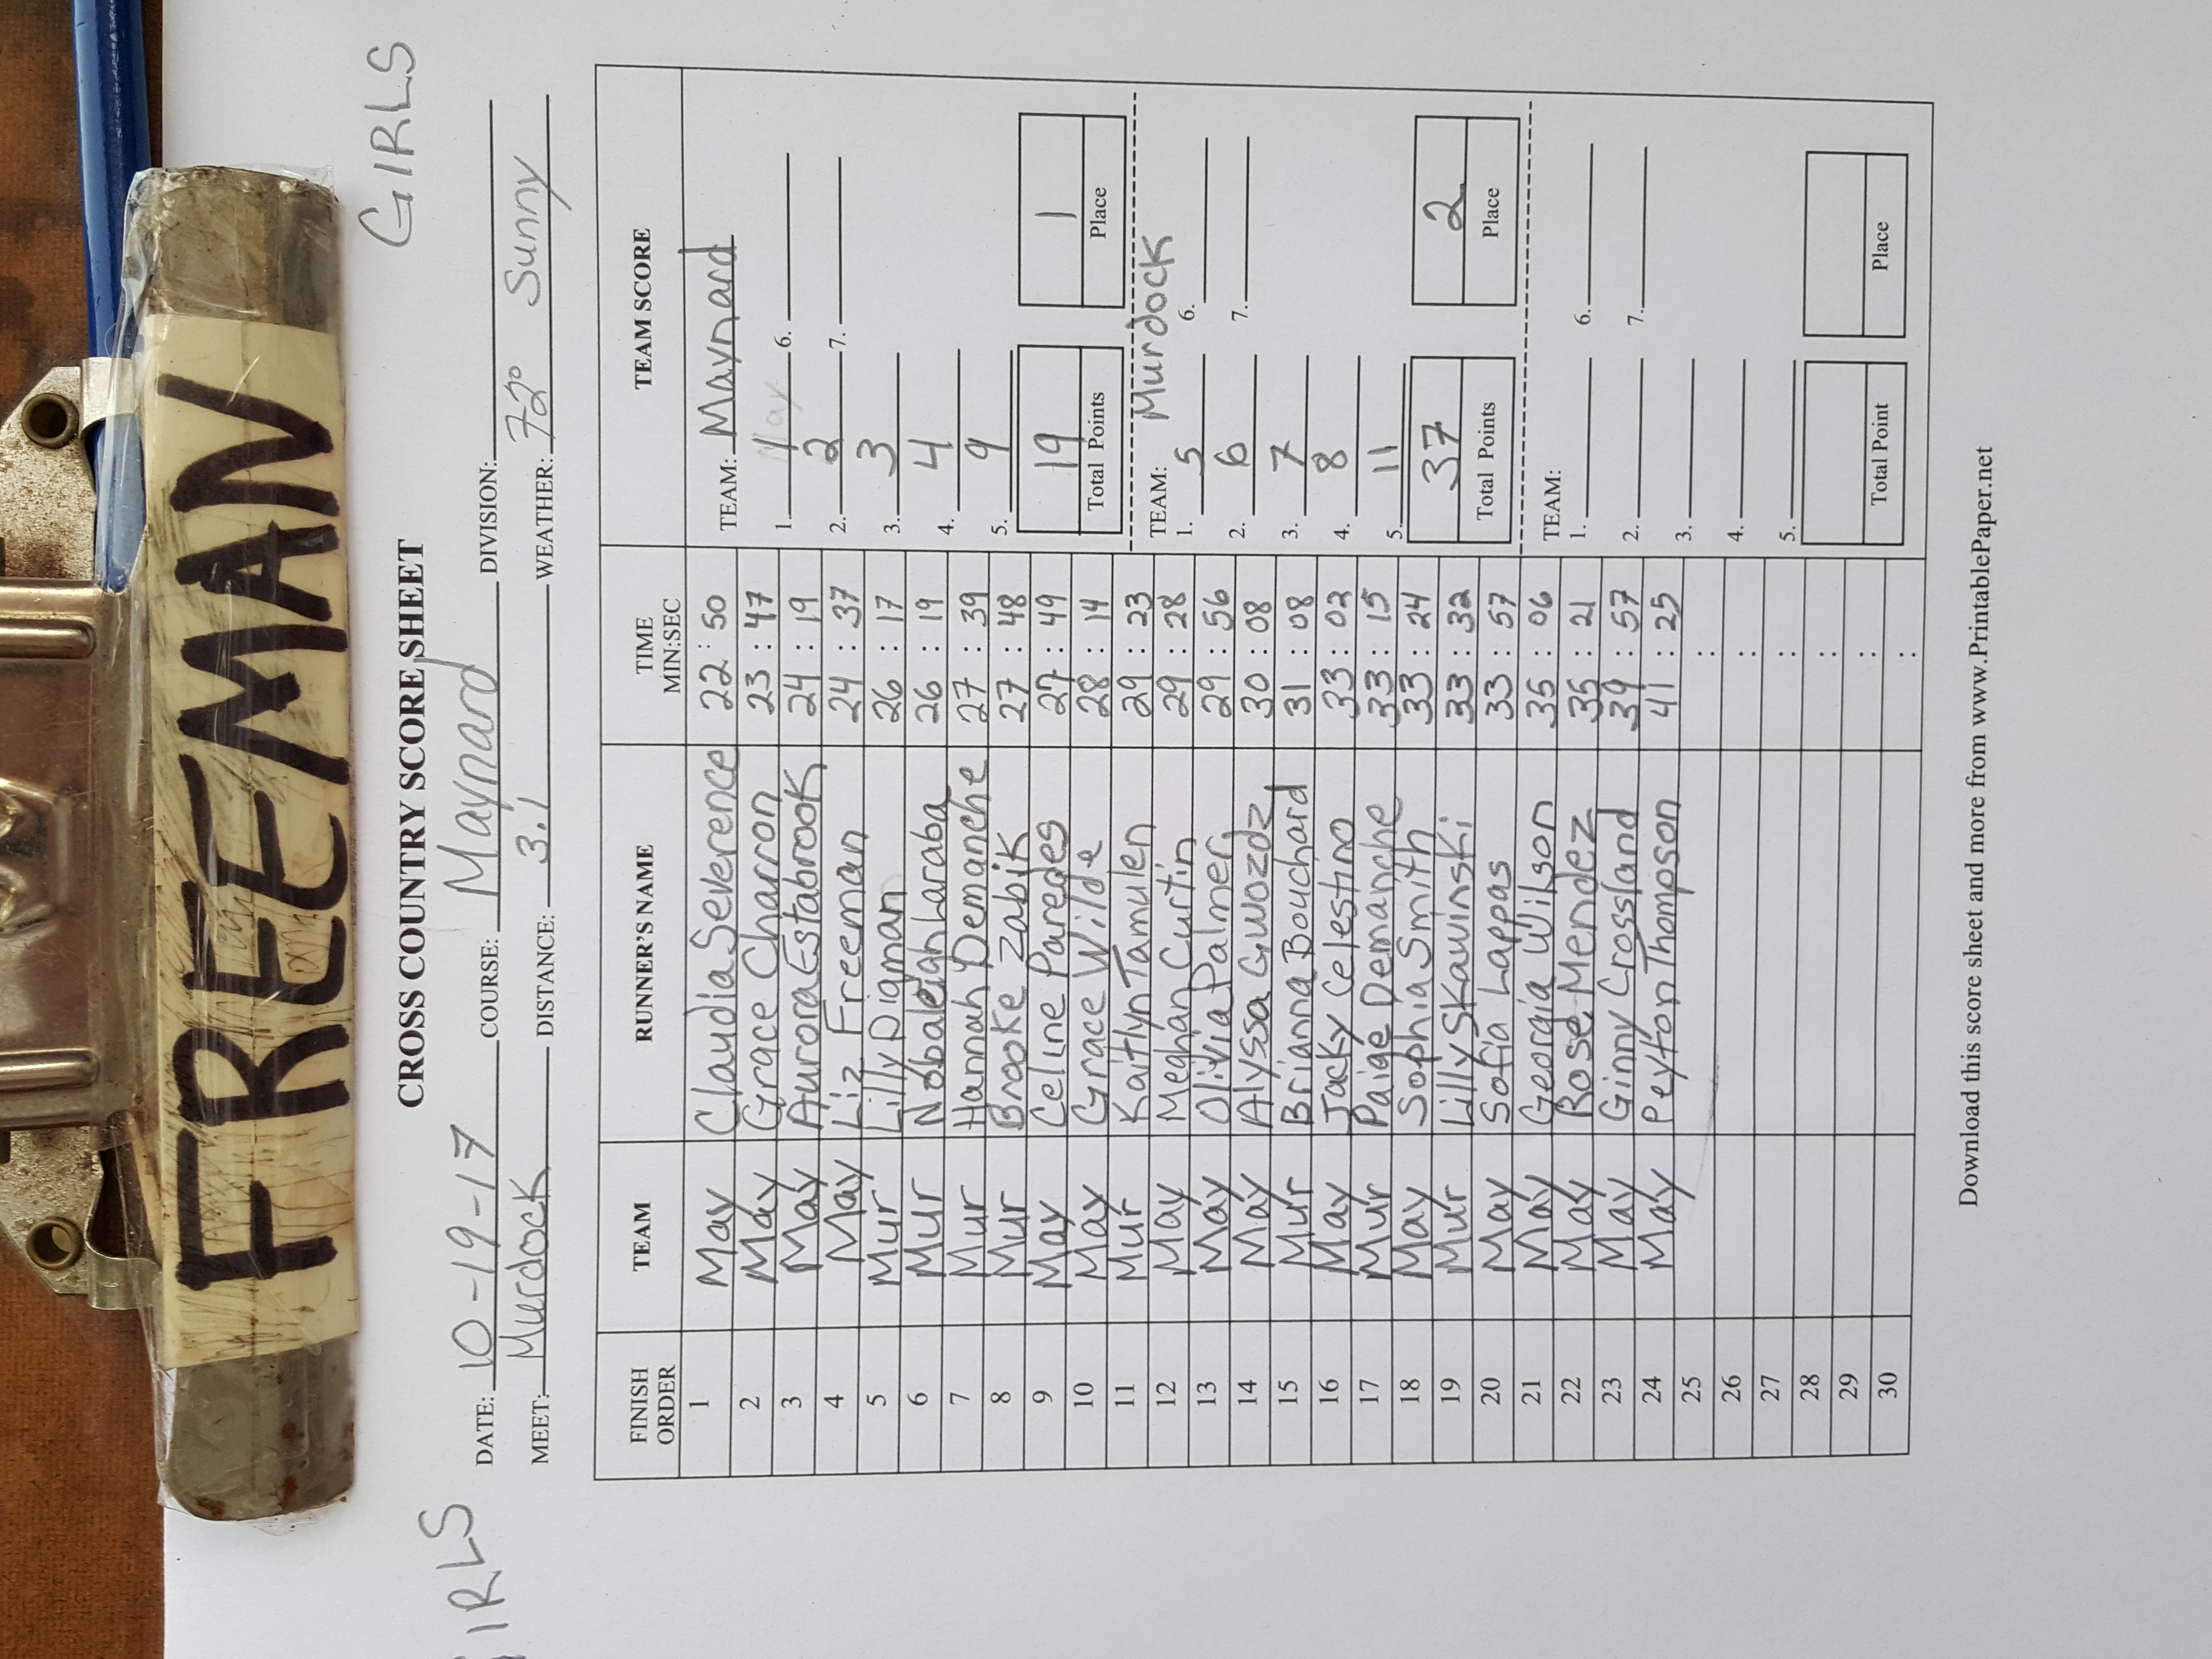 FREEMAN
GIRLS
IRLS
CROSS COUNTRY SCORE SHEET
DATE: 10-19-17 COURSE: Maynard DIVISION:
MEET: Murdock DISTANCE: 3.1 WEATHER: 72° Sunny
FINISH ORDER TEAM RUNNER'S NAME TIME MIN:SEC TEAM SCORE
1 May Claudia Severence 22:50
2 May Grace Charron 23:47
3 May Aurora Estabrook 24:19
4 May Liz Freeman 24:37
5 Mur Lilly Digman 26:17
6 Mur Nobaleigh Laraba 26:19
7 Mur Hannah Demanche 27:39
8 Mur Brooke Zabik 27:48
9 May Celine Paredes 27:49
10 May Grace Wilde 28:14
11 Mur Kaitlyn Tamulen 29:23
12 May Meghan Curtin 29:28
13 May Olivia Palmer 29:56
14 May Alyssa Gwozdz 30:08
15 Mur Brianna Bouchard 31:08
16 May Jacky Celestino 33:02
17 Mur Paige Demanche 33:15
18 May Sophia Smith 33:24
19 Mur Lilly Skawinski 33:32
20 May Sofia Lappas 33:57
21 May Georgia Wilson 35:06
22 May Rose Mendez 35:21
23 May Ginny Crossland 39:57
24 May Peyton Thompson 41:25
25 :
26 :
27 :
28 :
29 :
30 :
TEAM: Maynard
1. 1 6.
2. 2 7.
3. 3
4. 4
5. 9
19 1
Total Points Place
TEAM: Murdock
1. 5 6.
2. 6 7.
3. 7
4. 8
5. 11
37 2
Total Points Place
TEAM:
1. 6.
2. 7.
3.
4.
5.
Total Point Place
Download this score sheet and more from www.PrintablePaper.net